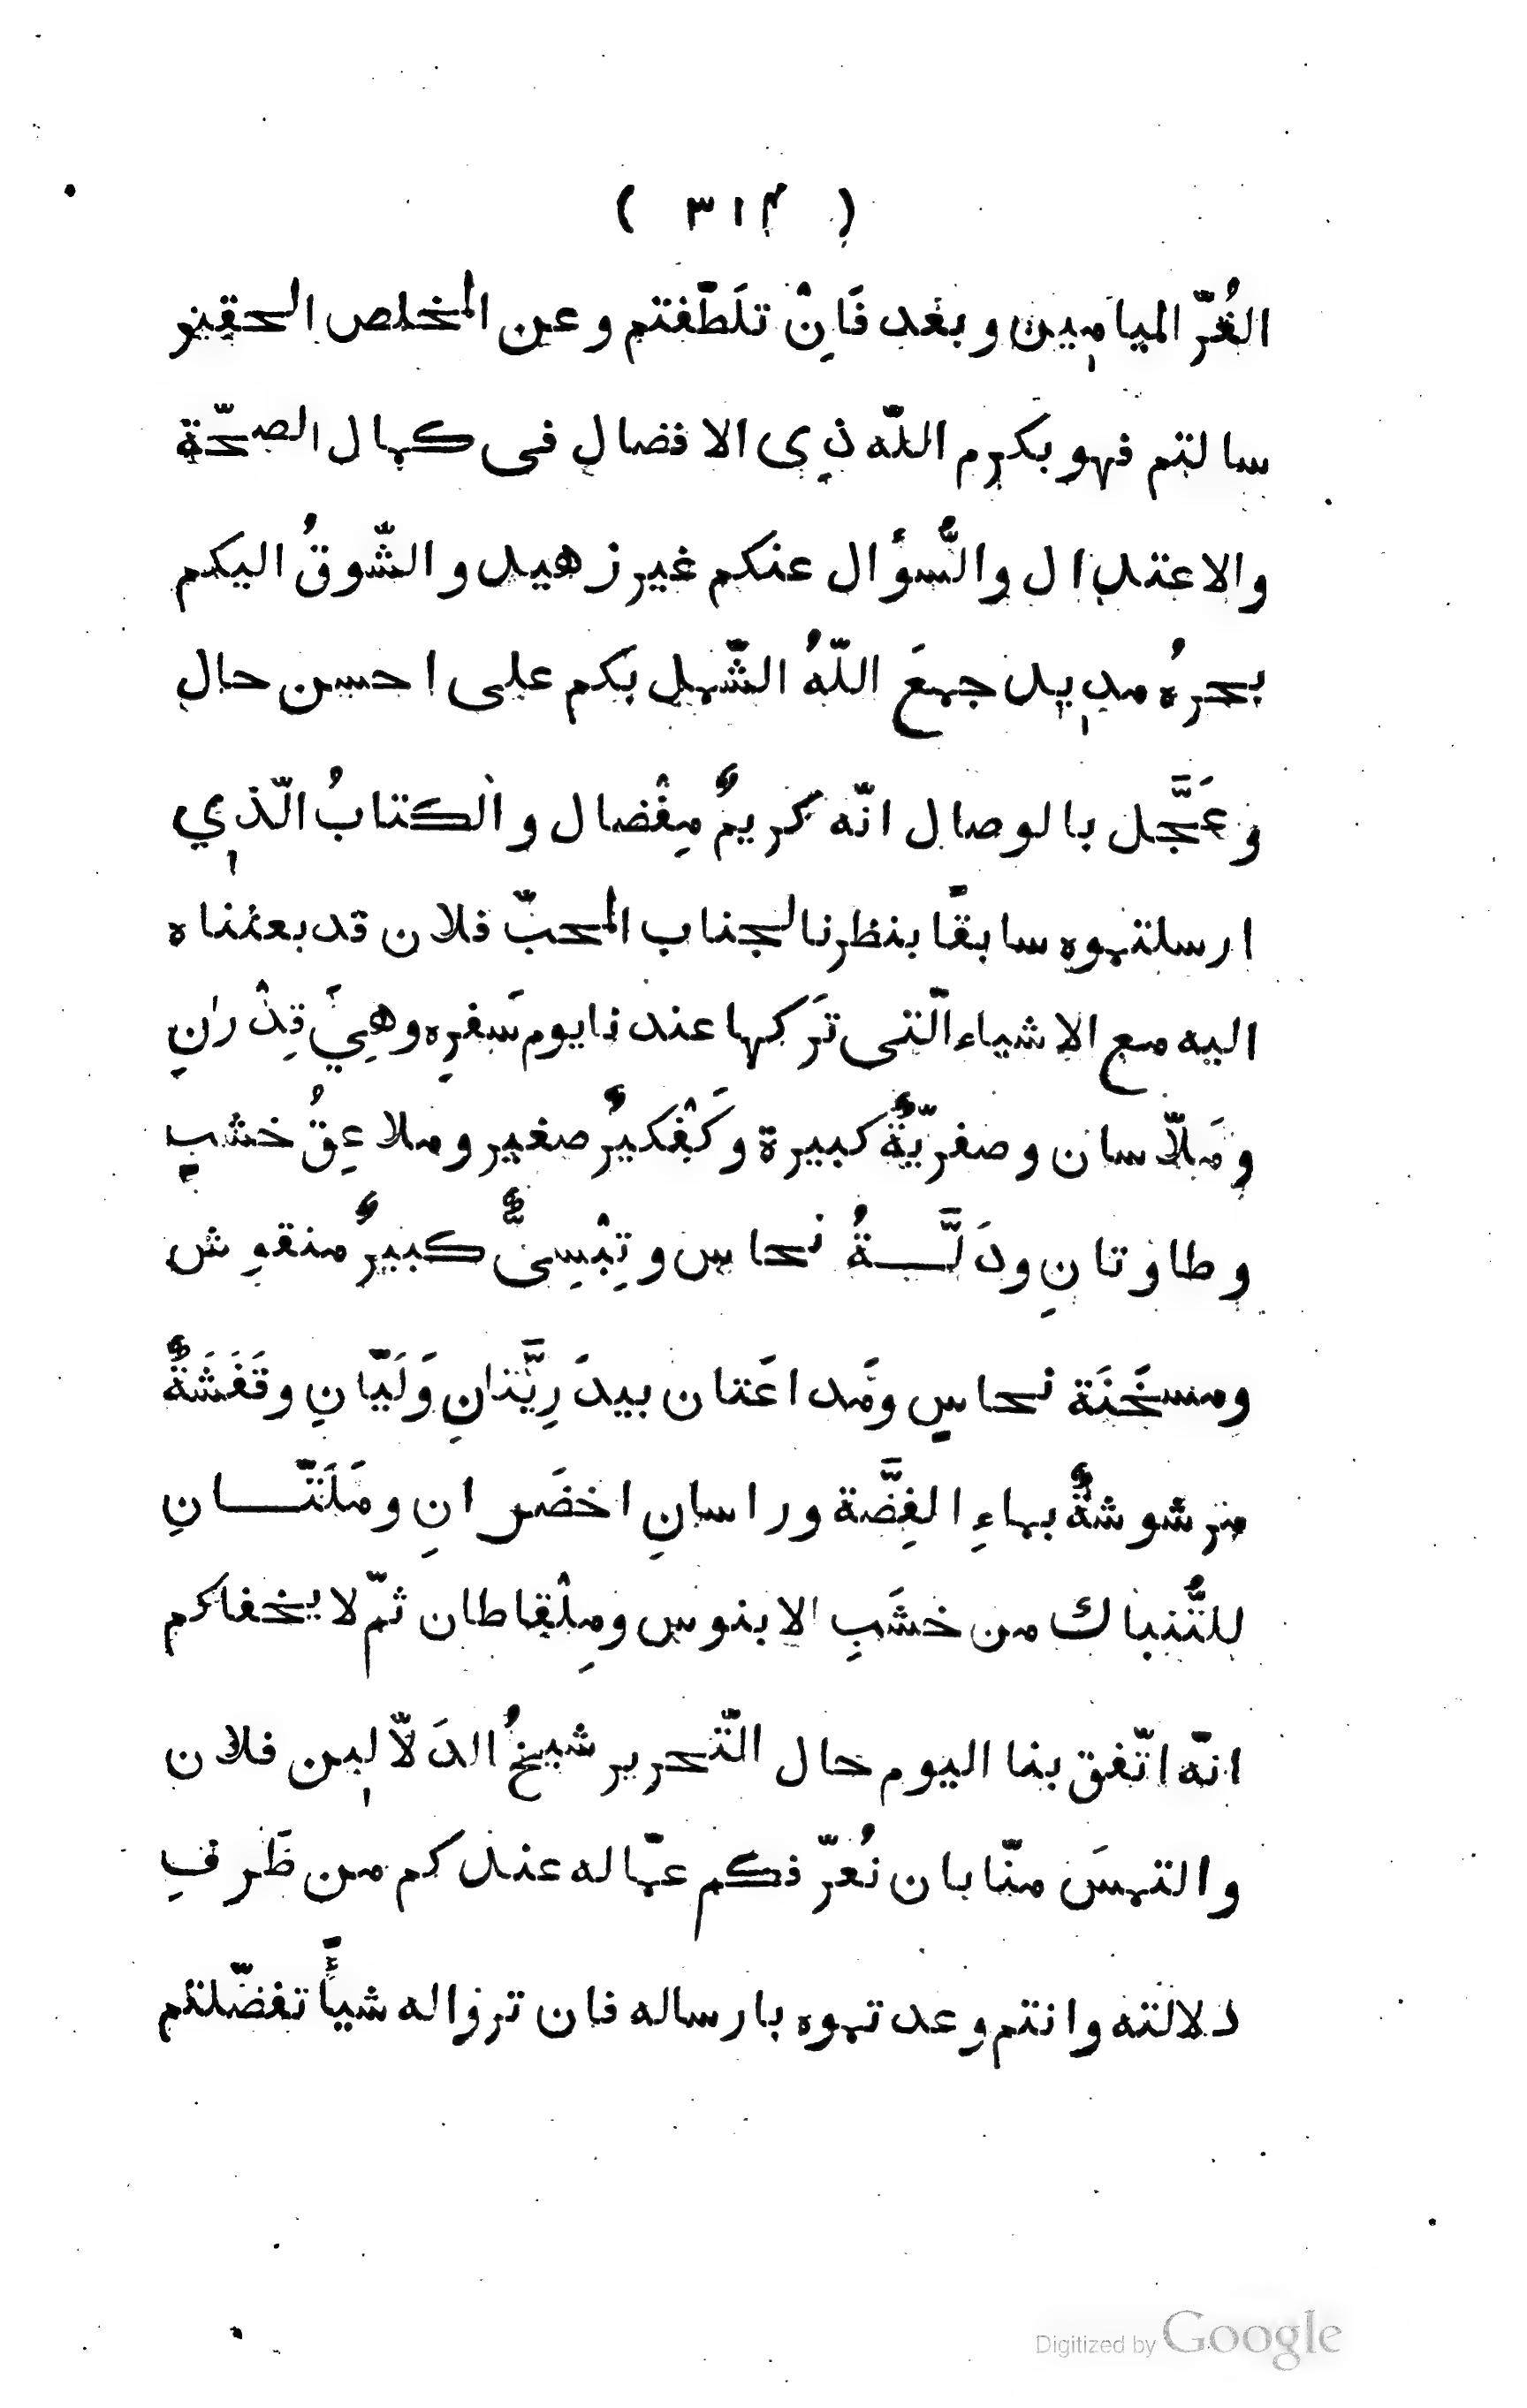 ( ٣١٤ )
الغُرّ الميامين وبعد فَاِنْ تلَطّفتم وعن المخلص الحقير
سالتم فهو بكرم اللّه ذي الافضال فى كمال الصحّة
والاعتدال والسُّؤال عنكم غير زهيد والشّوقُ اليكم
بحرُه مديد جمعَ اللّهُ الشّمل بكم على احسن حال
وعَجَّل بالوصال انّه كريمٌ مِفْضال والكتابُ الّذي
ارسلتموه سابقًا بنظرنا لجناب المحبّ فلان قد بعثناه
اليه مع الاشياء الّتى تَركها عندنا يوم سَفرِه وهِيَ قِدْرانِ
ومَلّاسان وصفرّيّةٌ كبيرة وكَفْكيرٌ صغير وملاعِقُ خشبٍ
وطاوتانِ ودَلَّةُ نحاس وتِبْسِىٌّ كبيرٌ منقوش
ومسخَنَة نحاسٍ ومَداعَتان بيدَرِيَّتانِ ولَيّانِ وقَفَشَةٌ
مرشوشةٌ بماءِ الفِضَّة وراسانِ اخضَرانِ ومَلَتّانِ
للتُّنباك من خشَبِ الابنوس ومِلْقاطان ثمّ لا يخفاكم
انّه اتّفق بنا اليوم حال التّحرير شيخُ الدَلّالين فلان
والتمسَ منّا بان نُعرّفكم عمّا له عندكم من طَرفِ
دلالته وانتم وعدتموه بارساله فان تروا له شيأً تفضّلتم
Digitized by Google